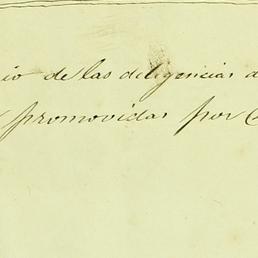 io de las diligencias d
promovidas por C